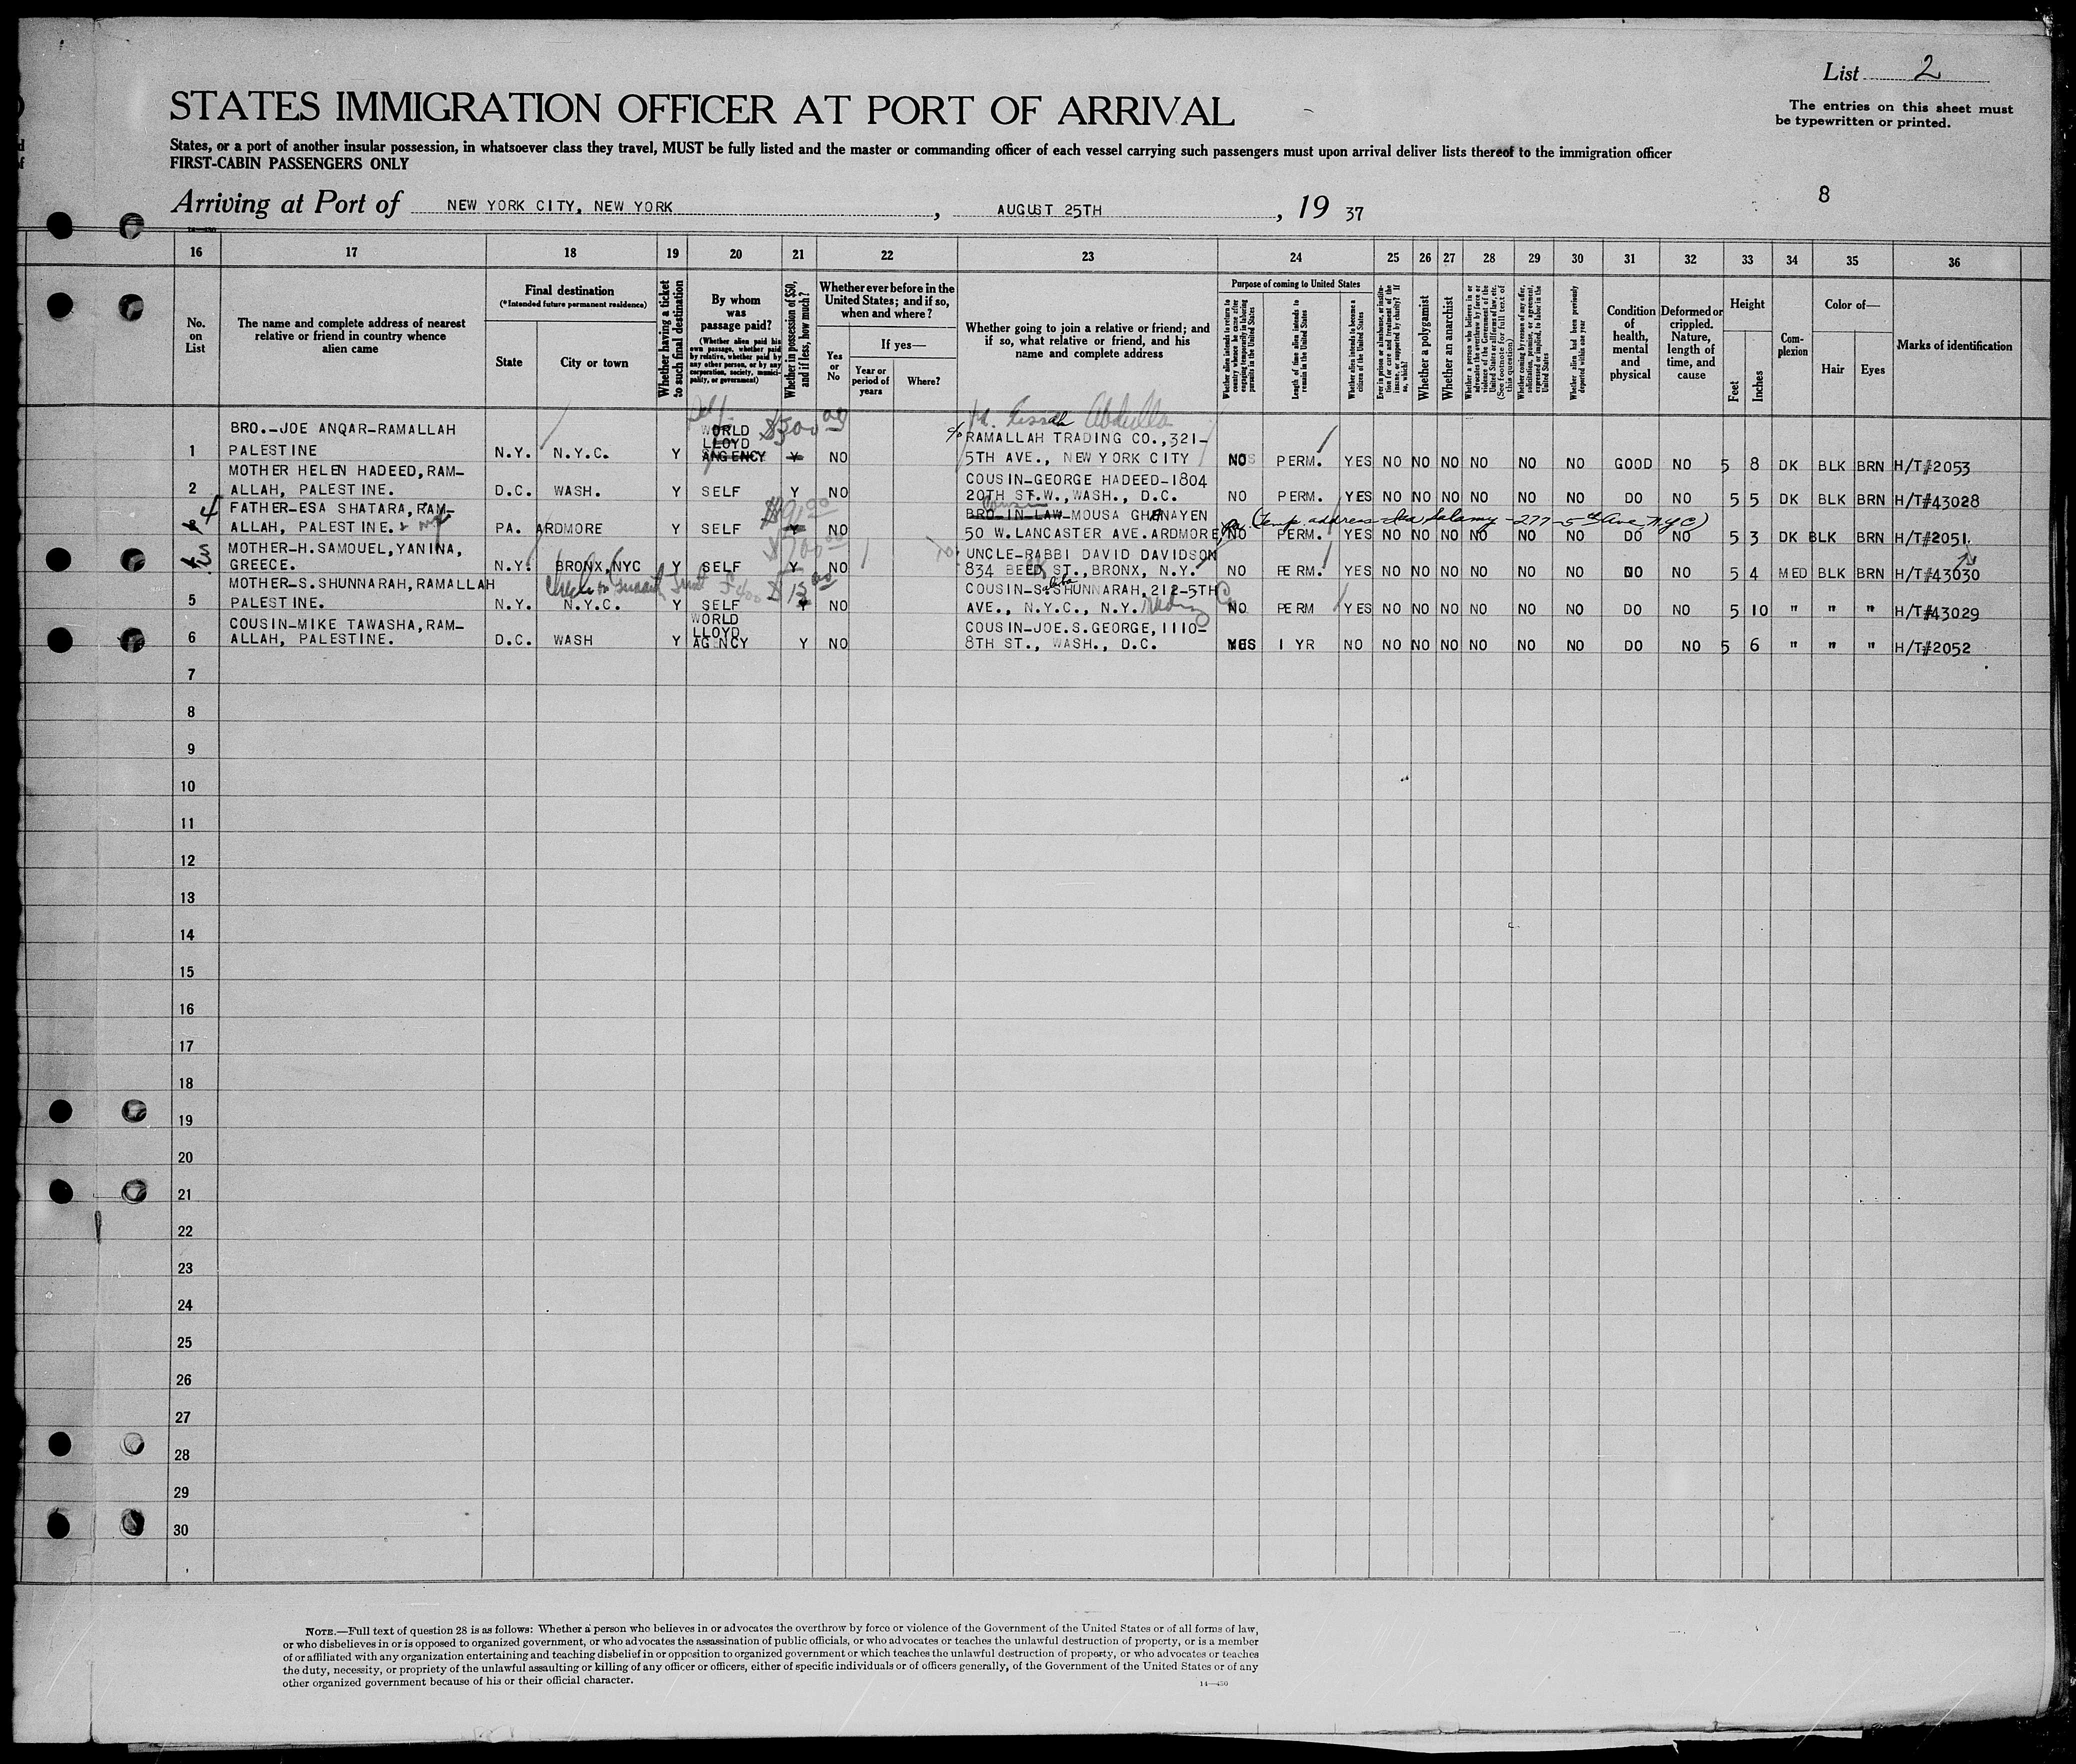 List 2
The entries on this sheet must
be typewritten or printed.
STATES IMMIGRATION OFFICER AT PORT OF ARRIVAL
States, or a port of another insular possession, in whatsoever class they travel, MUST be fully listed and the master or commanding officer of each vessel carrying such passengers must upon arrival deliver lists thereof to the immigration officer
FIRST-CABIN PASSENGERS ONLY
Arriving at Port of NEW YORK CITY, NEW YORK, AUGUST 25TH, 19 37
8
16 17 18 19 20 21 22 23 24 25 26 27 28 29 30 31 32 33 34 35 36
No. on List
The name and complete address of nearest relative or friend in country whence alien came
Final destination
(*Intended future permanent residence)
State
City or town
Whether having a ticket to such final destination
By whom was passage paid?
(Whether alien paid his own passage, whether paid by relative, whether paid by any other person, or by any corporation, society, municipality, or government)
Whether in possession of $50, and if less, how much?
Whether ever before in the United States; and if so, when and where?
Yes or No
If yes—
Year or period of years
Where?
Whether going to join a relative or friend; and if so, what relative or friend, and his name and complete address
Purpose of coming to United States
Whether alien intends to return to country whence he came after engaging temporarily in laboring pursuits in the United States
Length of time alien intends to remain in the United States
Whether alien intends to become a citizen of the United States
Ever in prison or almshouse, or institution for care and treatment of the insane, or supported by charity? If so, which?
Whether a polygamist
Whether an anarchist
Whether a person who believes in or advocates the overthrow by force or violence of the Government of the United States or all forms of law, etc. (See footnote for full text of this question)
Whether coming by reason of any offer, solicitation, promise, or agreement, expressed or implied, to labor in the United States
Whether alien had been previously deported within one year
Condition of health, mental and physical
Deformed or crippled. Nature, length of time, and cause
Height
Feet
Inches
Complexion
Color of—
Hair
Eyes
Marks of identification
Self $300 00
1 BRO.-JOE ANQAR-RAMALLAH
PALESTINE N.Y. N.Y.C. Y WORLD LLOYD AGENCY Y NO
% RAMALLAH TRADING CO., 321-
5TH AVE., NEW YORK CITY NO PERM. YES NO NO NO NO NO NO GOOD NO 5 8 DK BLK BRN H/T#2053
2 MOTHER HELEN HADEED, RAM-
ALLAH, PALESTINE. D.C. WASH. Y SELF Y NO
COUSIN-GEORGE HADEED-1804
20TH ST.W., WASH., D.C. NO PERM. YES NO NO NO NO NO NO DO NO 5 5 DK BLK BRN H/T#43028
4 FATHER-ESA SHATARA, RAM-
ALLAH, PALESTINE. PA. ARDMORE Y SELF Y NO
Cousin
BRO-IN-LAW-MOUSA GHANAYEN
50 W. LANCASTER AVE. ARDMORE, Pa. (Temp address - Isa Salamy - 277 - 5th Ave N.Y.C)
NO PERM. YES NO NO NO NO NO NO DO NO 5 3 DK BLK BRN H/T#2051
MOTHER-H. SAMOUEL, YANINA,
GREECE. N.Y. BRONX, NYC Y SELF Y NO
UNCLE-RABBI DAVID DAVIDSON
834 BECK ST., BRONX, N.Y. NO PERM. YES NO NO NO NO NO NO DO NO 5 4 MED BLK BRN H/T#43030
5 MOTHER-S. SHUNNARAH, RAMALLAH
PALESTINE. N.Y. N.Y.C. Y SELF Y NO
COUSIN-S. SHUNNARAH, 212-5TH
AVE., N.Y.C., N.Y. NO PERM YES NO NO NO NO NO NO DO NO 5 10 " " " H/T#43029
6 COUSIN-MIKE TAWASHA, RAM-
ALLAH, PALESTINE. D.C. WASH Y WORLD LLOYD AGENCY Y NO
COUSIN-JOE.S.GEORGE, 1110-
8TH ST., WASH., D.C. YES 1 YR NO NO NO NO NO NO NO DO NO 5 6 " " " H/T#2052
7
8
9
10
11
12
13
14
15
16
17
18
19
20
21
22
23
24
25
26
27
28
29
30
NOTE.—Full text of question 28 is as follows: Whether a person who believes in or advocates the overthrow by force or violence of the Government of the United States or of all forms of law,
or who disbelieves in or is opposed to organized government, or who advocates the assassination of public officials, or who advocates or teaches the unlawful destruction of property, or is a member
of or affiliated with any organization entertaining and teaching disbelief in or opposition to organized government or which teaches the unlawful destruction of property, or who advocates or teaches
the duty, necessity, or propriety of the unlawful assaulting or killing of any officer or officers, either of specific individuals or of officers generally, of the Government of the United States or of any
other organized government because of his or their official character.
14—430